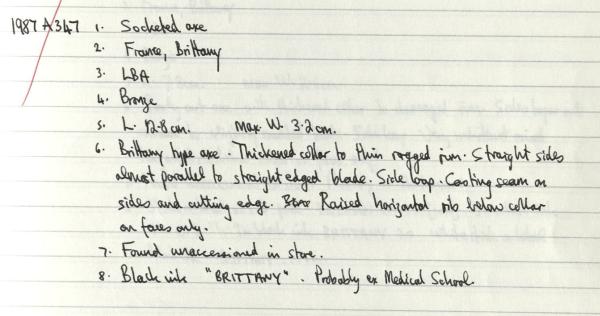 1987 A347 1. Socketed axe
2. France, Brittany
3. LBA
4. Bronze
5. L. 12.8 cm. Max W. 3.2 cm.
6. Brittany type axe. Thickened collar to thin ragged rim. Straight sides
almost parallel to straight edged blade. Side loop. Casting seam on
sides and cutting edge. Raised horizontal rib below collar
on faces only.
7. Found unaccessioned in store.
8. Black ink "BRITTANY". Probably ex Medical School.